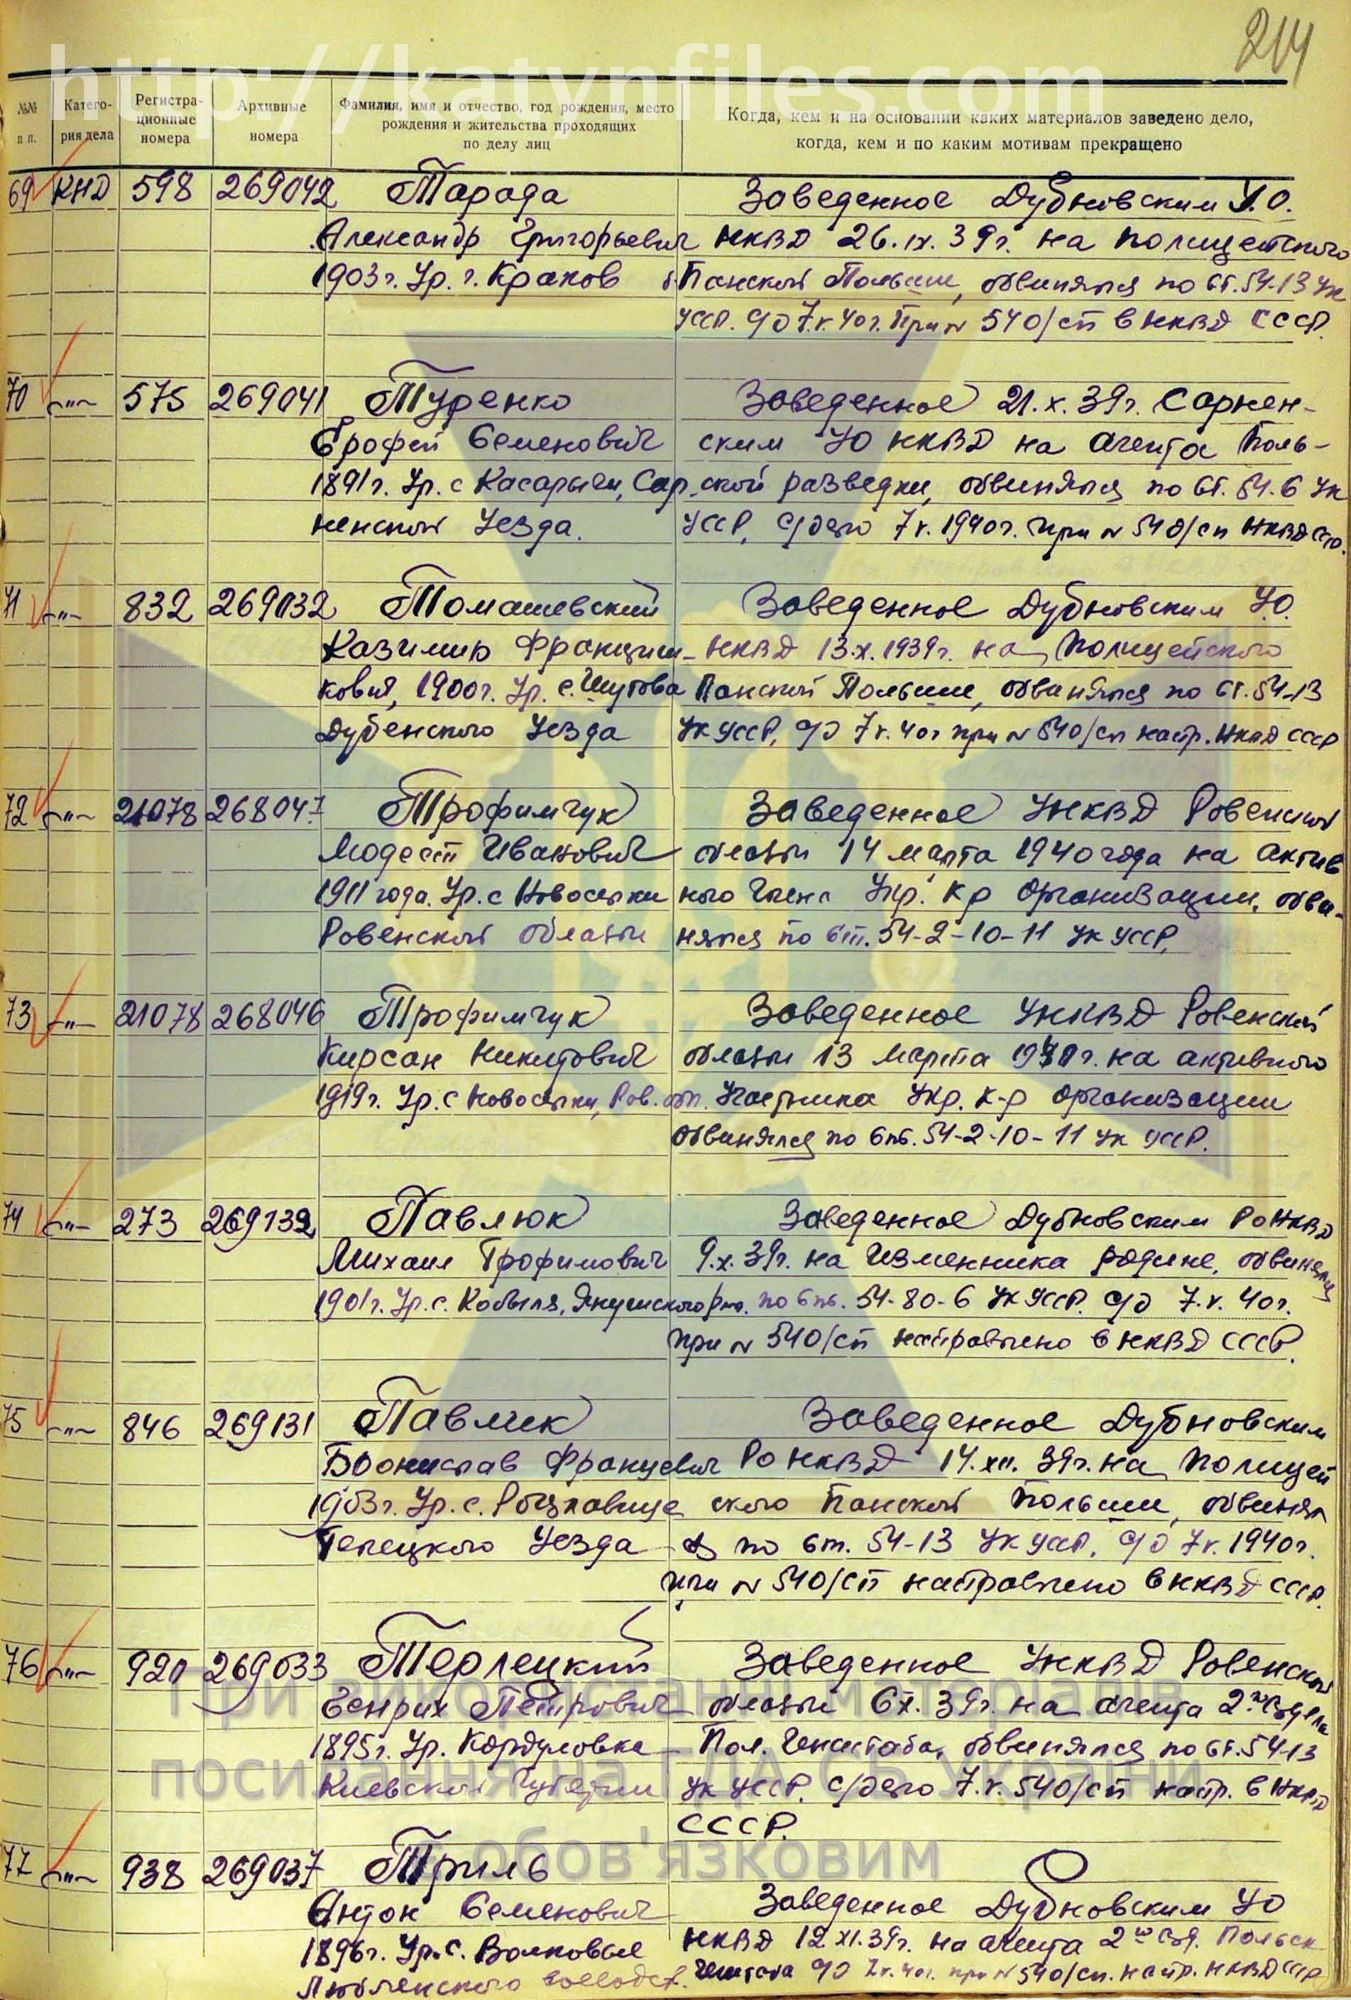 214
http://katynfiles.com
№№ п п.
Катего- рия дела
Регистра- ционные номера
Архивные номера
Фамилия, имя и отчество, год рождения, место рождения и жительства проходящих по делу лиц
Когда, кем и на основании каких материалов заведено дело, когда, кем и по каким мотивам прекращено
69 КНД 598 269042 Тарада Заведенное Дубновским У.О.
Александр Григорьевич НКВД 26.IX.39г. на полицейского
1903г. Ур. г. Краков б. Панской Польши, обвинялся по ст. 54-13 УК
УССР. с/д 7.V.40г. При № 540/сп в НКВД СССР.
70 -"- 575 269041 Туренко Заведенное 21.X.39г. Сарнен-
Ерофей Семенович ским УО НКВД на агента Поль-
1891г. Ур. с Касарычи, Сар- ской разведки, обвинялся по ст. 54.6 УК
ненской Уезда. УССР, с/дело 7.V.1940г. при № 540/сп НКВД СССР.
71 -"- 832 269032 Томашевский Заведенное Дубновским УО.
Казимир Франциш- НКВД 13.X.1939г. на Полицейского
кович, 1900г. Ур. с. Шутова Панской Польши, обвинялся по ст. 54-13
Дубенского Уезда УК УССР, с/д 7.V.40г при № 540/сп напр. НКВД СССР
72 -"- 21078 268047 Трофимчук Заведенное УНКВД Ровенской
Модест Иванович области 14 марта 1940 года на актив
1911 года. Ур. с Новоселки ного члена Укр. кр организации, обви-
Ровенской области нялся по ст. 54-2-10-11 УК УССР.
73 -"- 21078 268046 Трофимчук Заведенное УНКВД Ровенской
Кирсан Никитович области 13 марта 1940г. на активного
1919г. Ур. с Новоселки, Ров. обл. Участника Укр. к-р организации
обвинялся по ст. 54-2-10-11 УК УССР.
74 -"- 273 269132 Павлюк Заведенное Дубновским РО НКВД
Михаил Трофимович 9.X.39г. на Изменника родине, обвинялся
1901г. Ур. с. Кобыля, по ст. 54-80-6 УК УССР. с/д 7.V.40г.
при № 540/сп направлено в НКВД СССР.
75 -"- 846 269131 Павлик Заведенное Дубновским
Бронислав Францевич РО НКВД 14.XII.39г. на Полицей
1903г. Ур. с. ского Панской Польши, обвинял
Уезда ся по ст. 54-13 УК УССР. с/д 7.V.1940г.
при № 540/сп направлено в НКВД СССР.
76 -"- 920 269033 Терлецкий Заведенное УНКВД Ровенской
Генрих Петрович области 6 X.39г. на агента 2го отдела
1895г. Ур. Кордуловка Пол. Генштаба, обвинялся по ст. 54-13
Киевской Губернии УК УССР. с/дело 7.V. 540/сп напр. в НКВД
СССР.
77 -"- 938 269037 Триль
Антон Семенович Заведенное Дубновским УО
1896г. Ур. с. Волковые НКВД 12 XI.39г. на агента 2го отд. Польск
воеводст. Генштаба с/д 7.V.40г. при № 540/сп. напр. НКВД СССР
При використанні матеріалів
посилання на ГДА СБ України
є обов'язковим